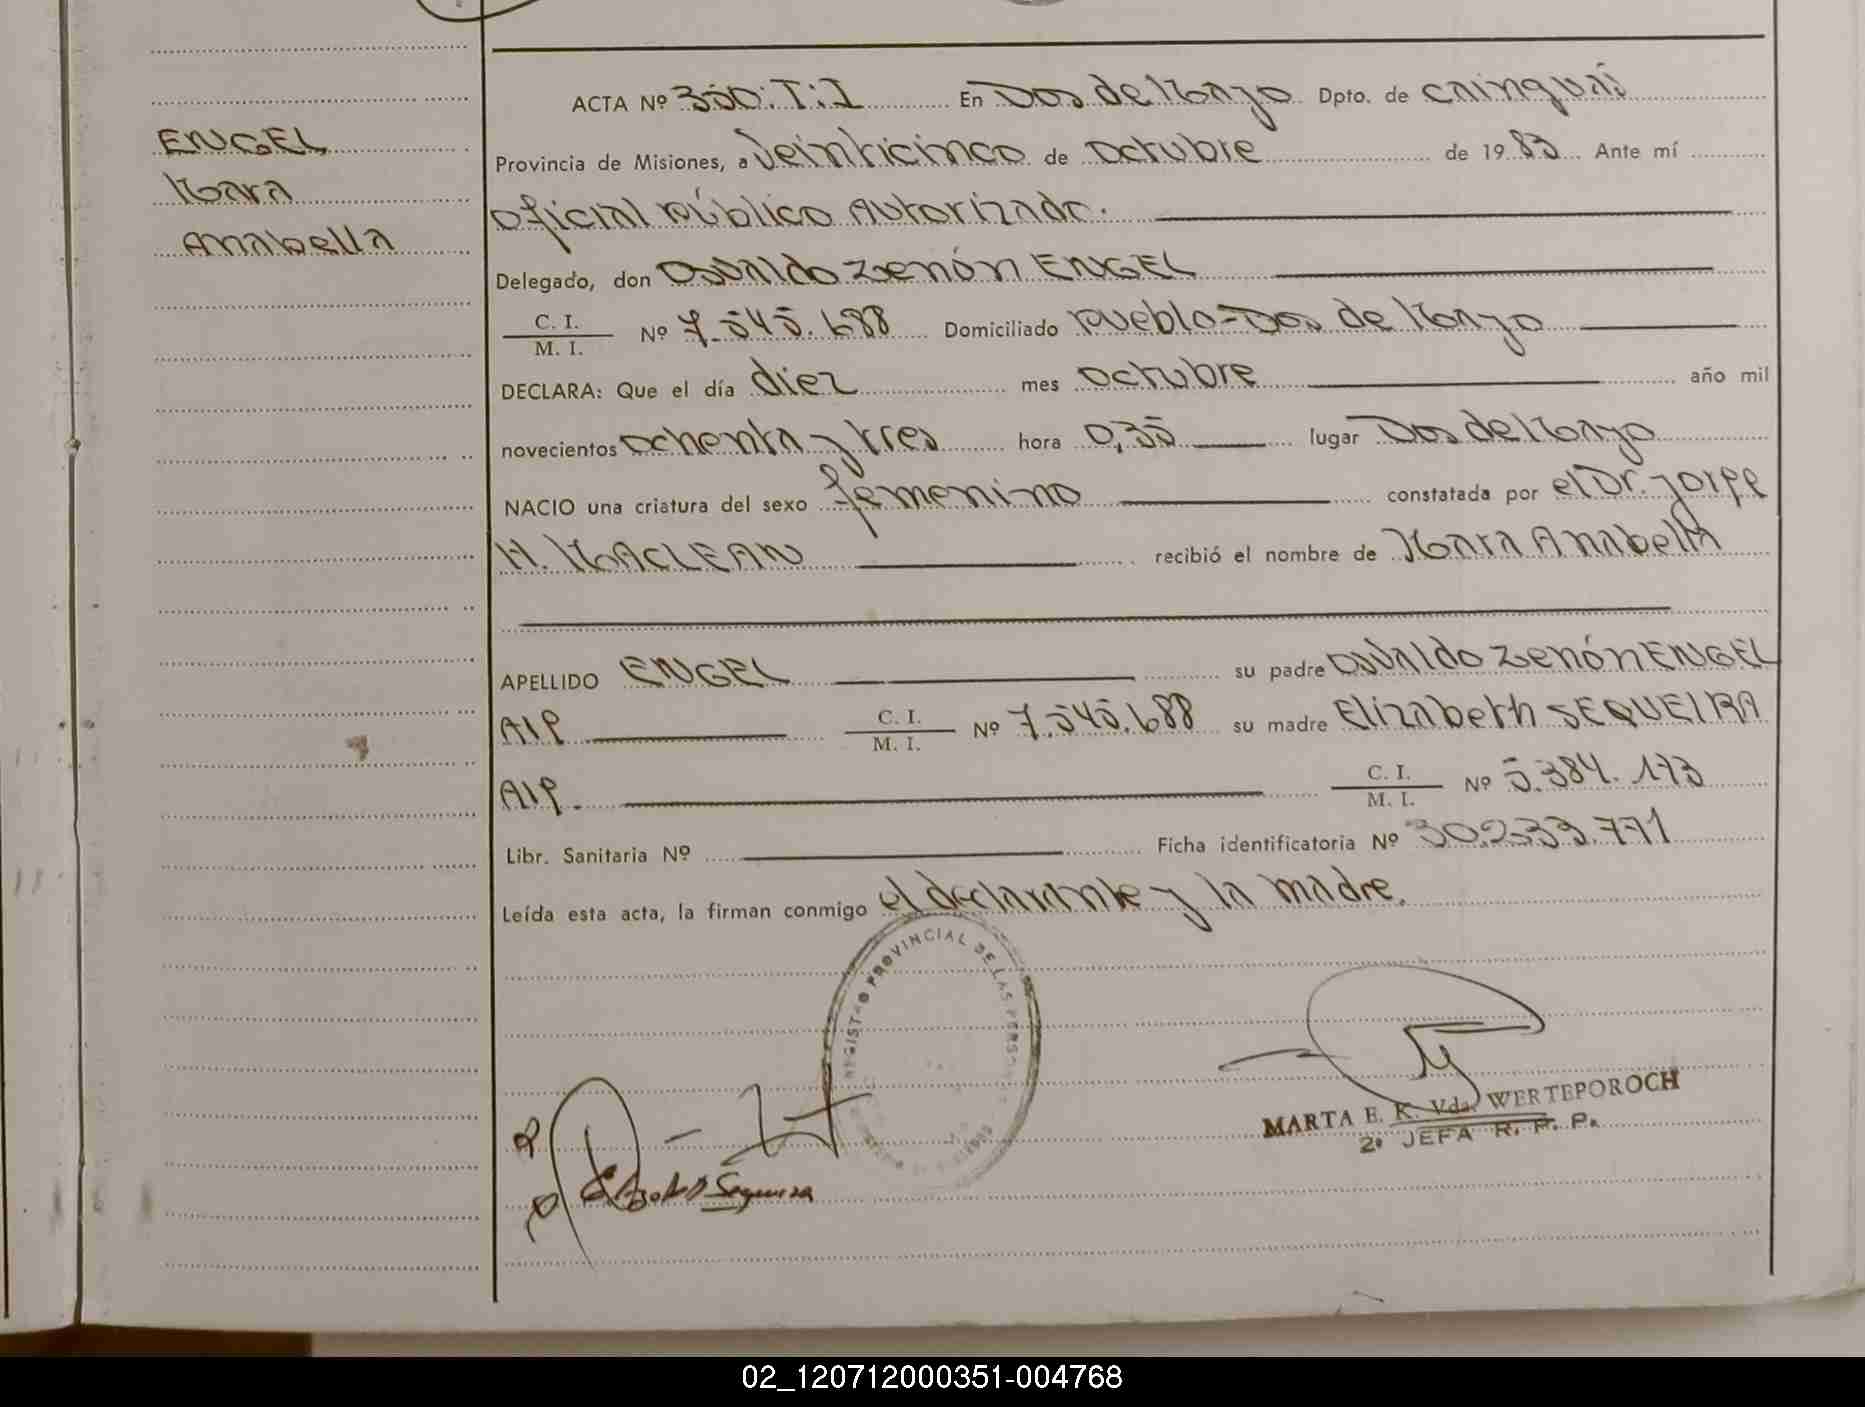 ENGEL
Mara
Anabella
ACTA Nº 350.T:I En Dos de Mayo Dpto. de Cainguás
Provincia de Misiones, a Veinticinco de octubre de 19 83 Ante mí
Oficial Público Autorizado.
Delegado, don Osvaldo Zenón ENGEL
C. I.
M. I. Nº 7.545.688 Domiciliado Pueblo-Dos de Mayo
DECLARA: Que el día diez mes octubre año mil
novecientos ochenta y tres hora 0,35 lugar Dos de Mayo
NACIO una criatura del sexo femenino constatada por el Dr. Jorge
H. MACLEAN recibió el nombre de Mara Anabella
APELLIDO ENGEL su padre Osvaldo Zenón ENGEL
C. I.
M. I. Nº 7.545.688 su madre Elizabeth SEQUEIRA
C. I.
M. I. Nº 5.384.173
Libr. Sanitaria Nº Ficha identificatoria Nº 30.233.771
Leída esta acta, la firman conmigo el declarante y la madre.
REGISTRO PROVINCIAL DE LAS PERS
MARTA E. K. Vda. WERTEPOROCH
2º JEFA R. P. P.
Sequeira
02_120712000351-004768